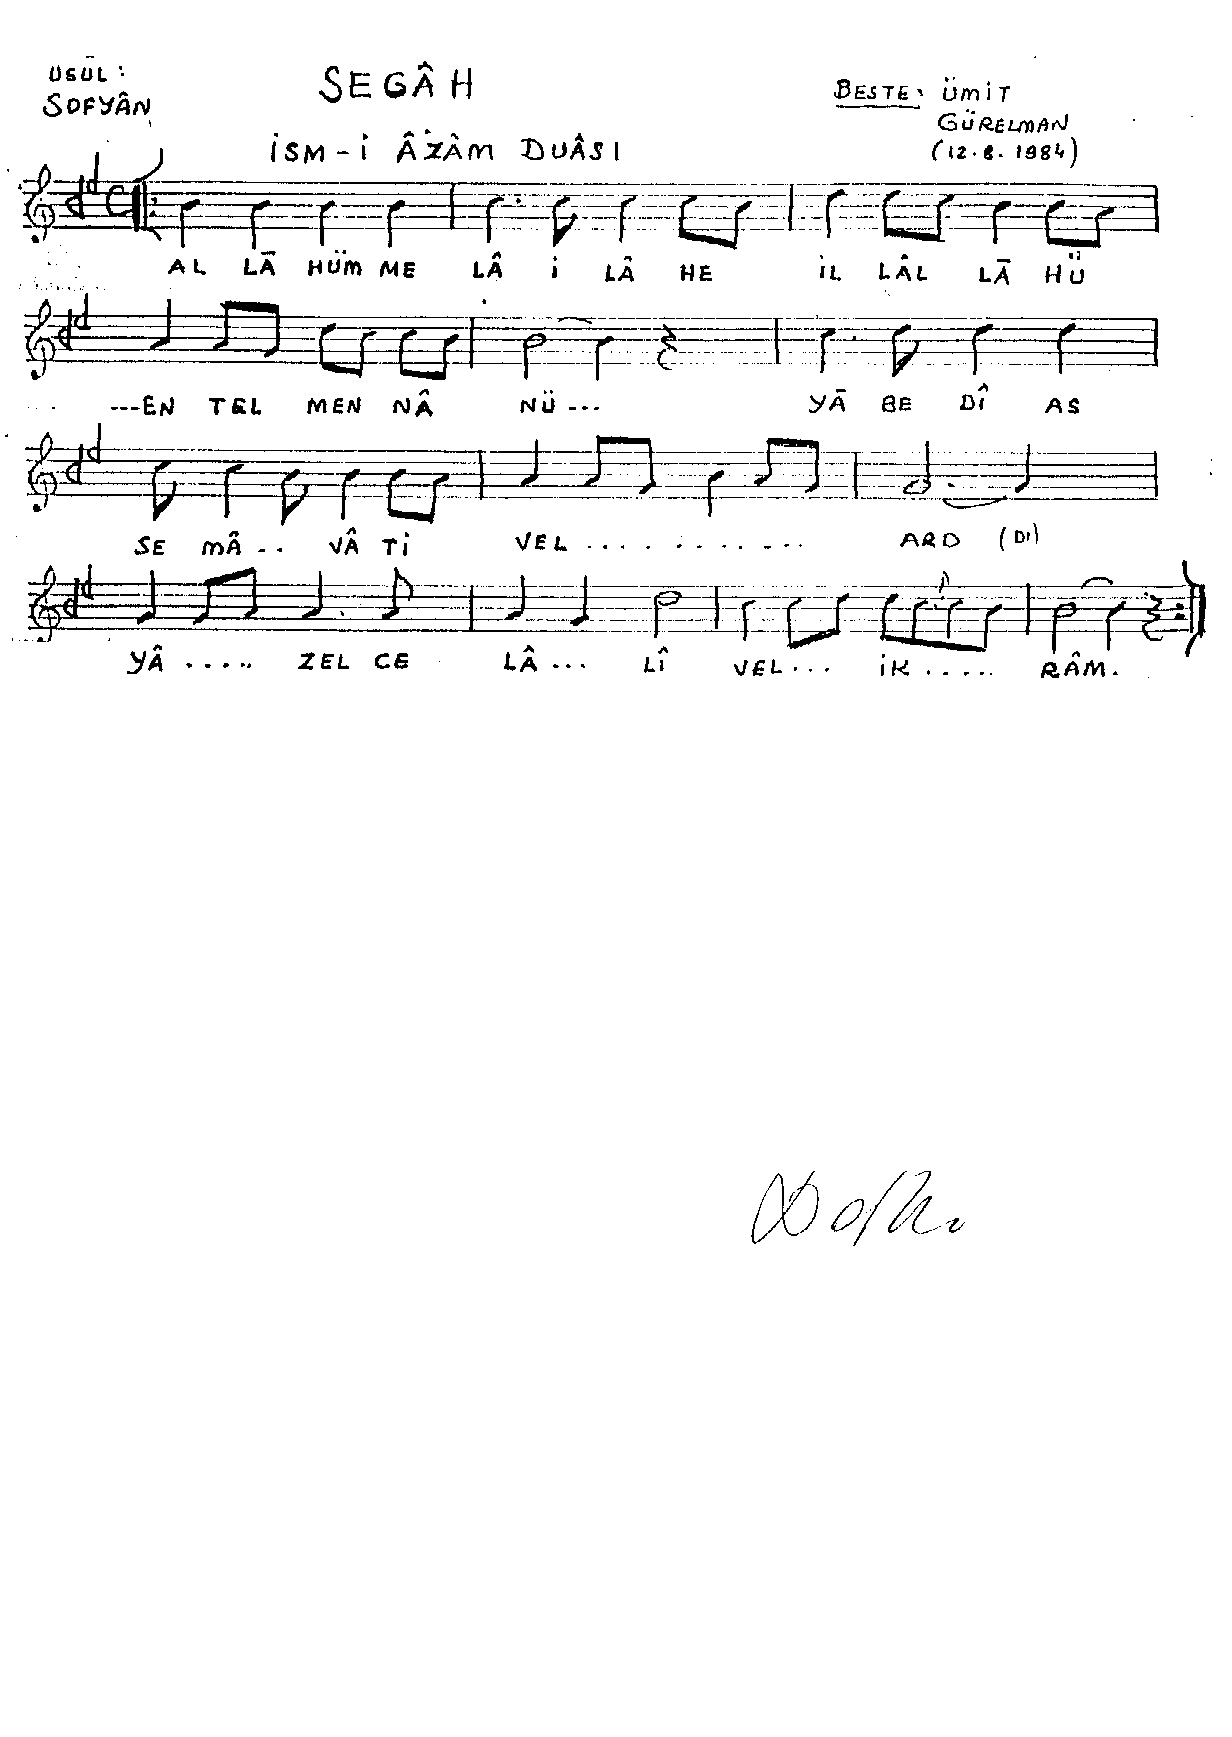 USÛL:
SOFYÂN
SEGÂH
BESTE: ÜMİT
GÜRELMAN
(12.8.1984)
İSM-İ ÂZÀM DUÂSI
AL LĀ HÜM ME LÂ İ LÂ HE İL LÂL LĀ HÜ
---EN TEL MEN NÂ NÜ--- YĀ BE DÎ AS
SE MÂ-- VÂ Tİ VEL .......... ARD (DI)
YÂ ..... ZEL CE LÂ... LÎ VEL... İK ..... RÂM.